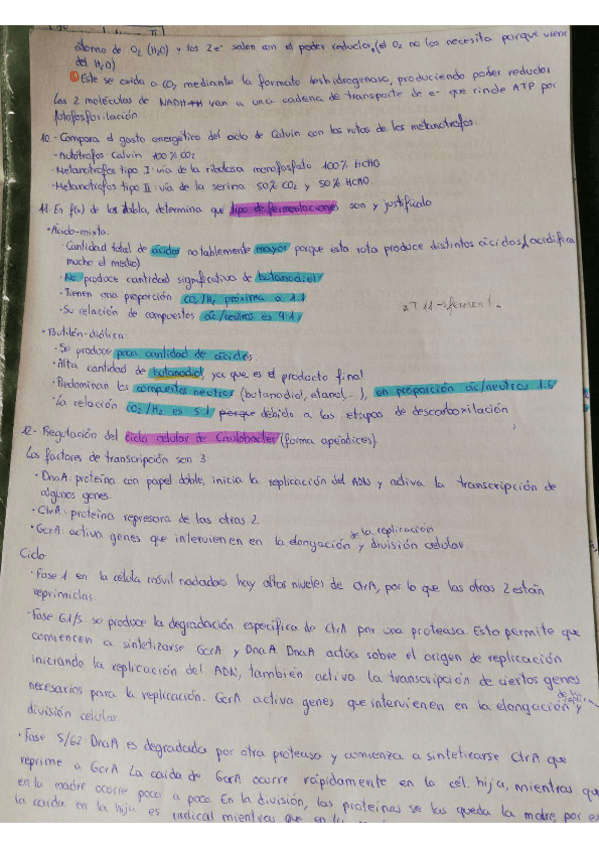 átomo de O₂ (H₂O) y los 2e⁻ salen con el poder reductor (el O₂ no los necesita porque viene
del H₂O)
Este se oxida a CO₂ mediante la formato deshidrogenasa, produciendo poder reductor
Las 2 moléculas de NADH+H van a una cadena de transporte de e- que rinde ATP por
fotofosforilación
10.- Compara el gasto energético del ciclo de Calvin con las rutas de los metanotrofos:
-Autótrofos: Calvin 100% CO₂
-Metanotrofos tipo I: vía de la ribulosa monofosfato 100% HCHO
-Metanotrofos tipo II: vía de la serina 50% CO₂ y 50% HCHO.
11. En f(x) de la tabla, determina que tipo de fermentaciones son y justifícalo
·Ácido-mixta:
·Cantidad total de ácidos notablemente mayor porque esta ruta produce distintos ácidos (acidifica
mucho el medio)
·No produce cantidad significativa de butanodiol
·Tienen una proporción CO₂/H₂ próxima a 1:1
·Su relación de compuestos ác/neutros es 4:1
·Butilén-diólica:
·Se produce poca cantidad de ácidos.
·Alta cantidad de butanodiol, ya que es el producto final
·Predominan los compuestos neutros (butanodiol, etanol...), en proporción ác/neutros 1:6
·La relación CO₂/H₂ es 5:1 porque debido a las etapas de descarboxilación
12.- Regulación del ciclo celular de Caulobacter (forma apéndices)
Los factores de transcripción son 3
·DnaA: proteína con papel doble, inicia la replicación del ADN y activa la transcripción de
algunos genes.
·CtrA: proteína represora de las otras 2.
·GcrA: activa genes que intervienen en la elongación de la replicación y división celular
Ciclo
·Fase 1 en la célula móvil nadadora hay altos niveles de CtrA, por lo que las otras 2 están
reprimidas.
·Fase G1/S se produce la degradación específica de CtrA por una proteasa. Esto permite que
comiencen a sintetizarse GcrA y DnaA. DnaA actúa sobre el origen de replicación
iniciando la replicación del ADN, también activa la transcripción de ciertos genes
necesarios para la replicación. GcrA activa genes que intervienen en la elongación y
división celular.
·Fase S/G2: DnaA es degradada por otra proteasa y comienza a sintetizarse CtrA que
reprime a GcrA. La caída de GcrA ocurre rápidamente en la cél. hija, mientras que
en la madre ocurre poco a poco. En la división, las proteínas se las queda la madre, por es
la caída en la hija es radical mientras que en